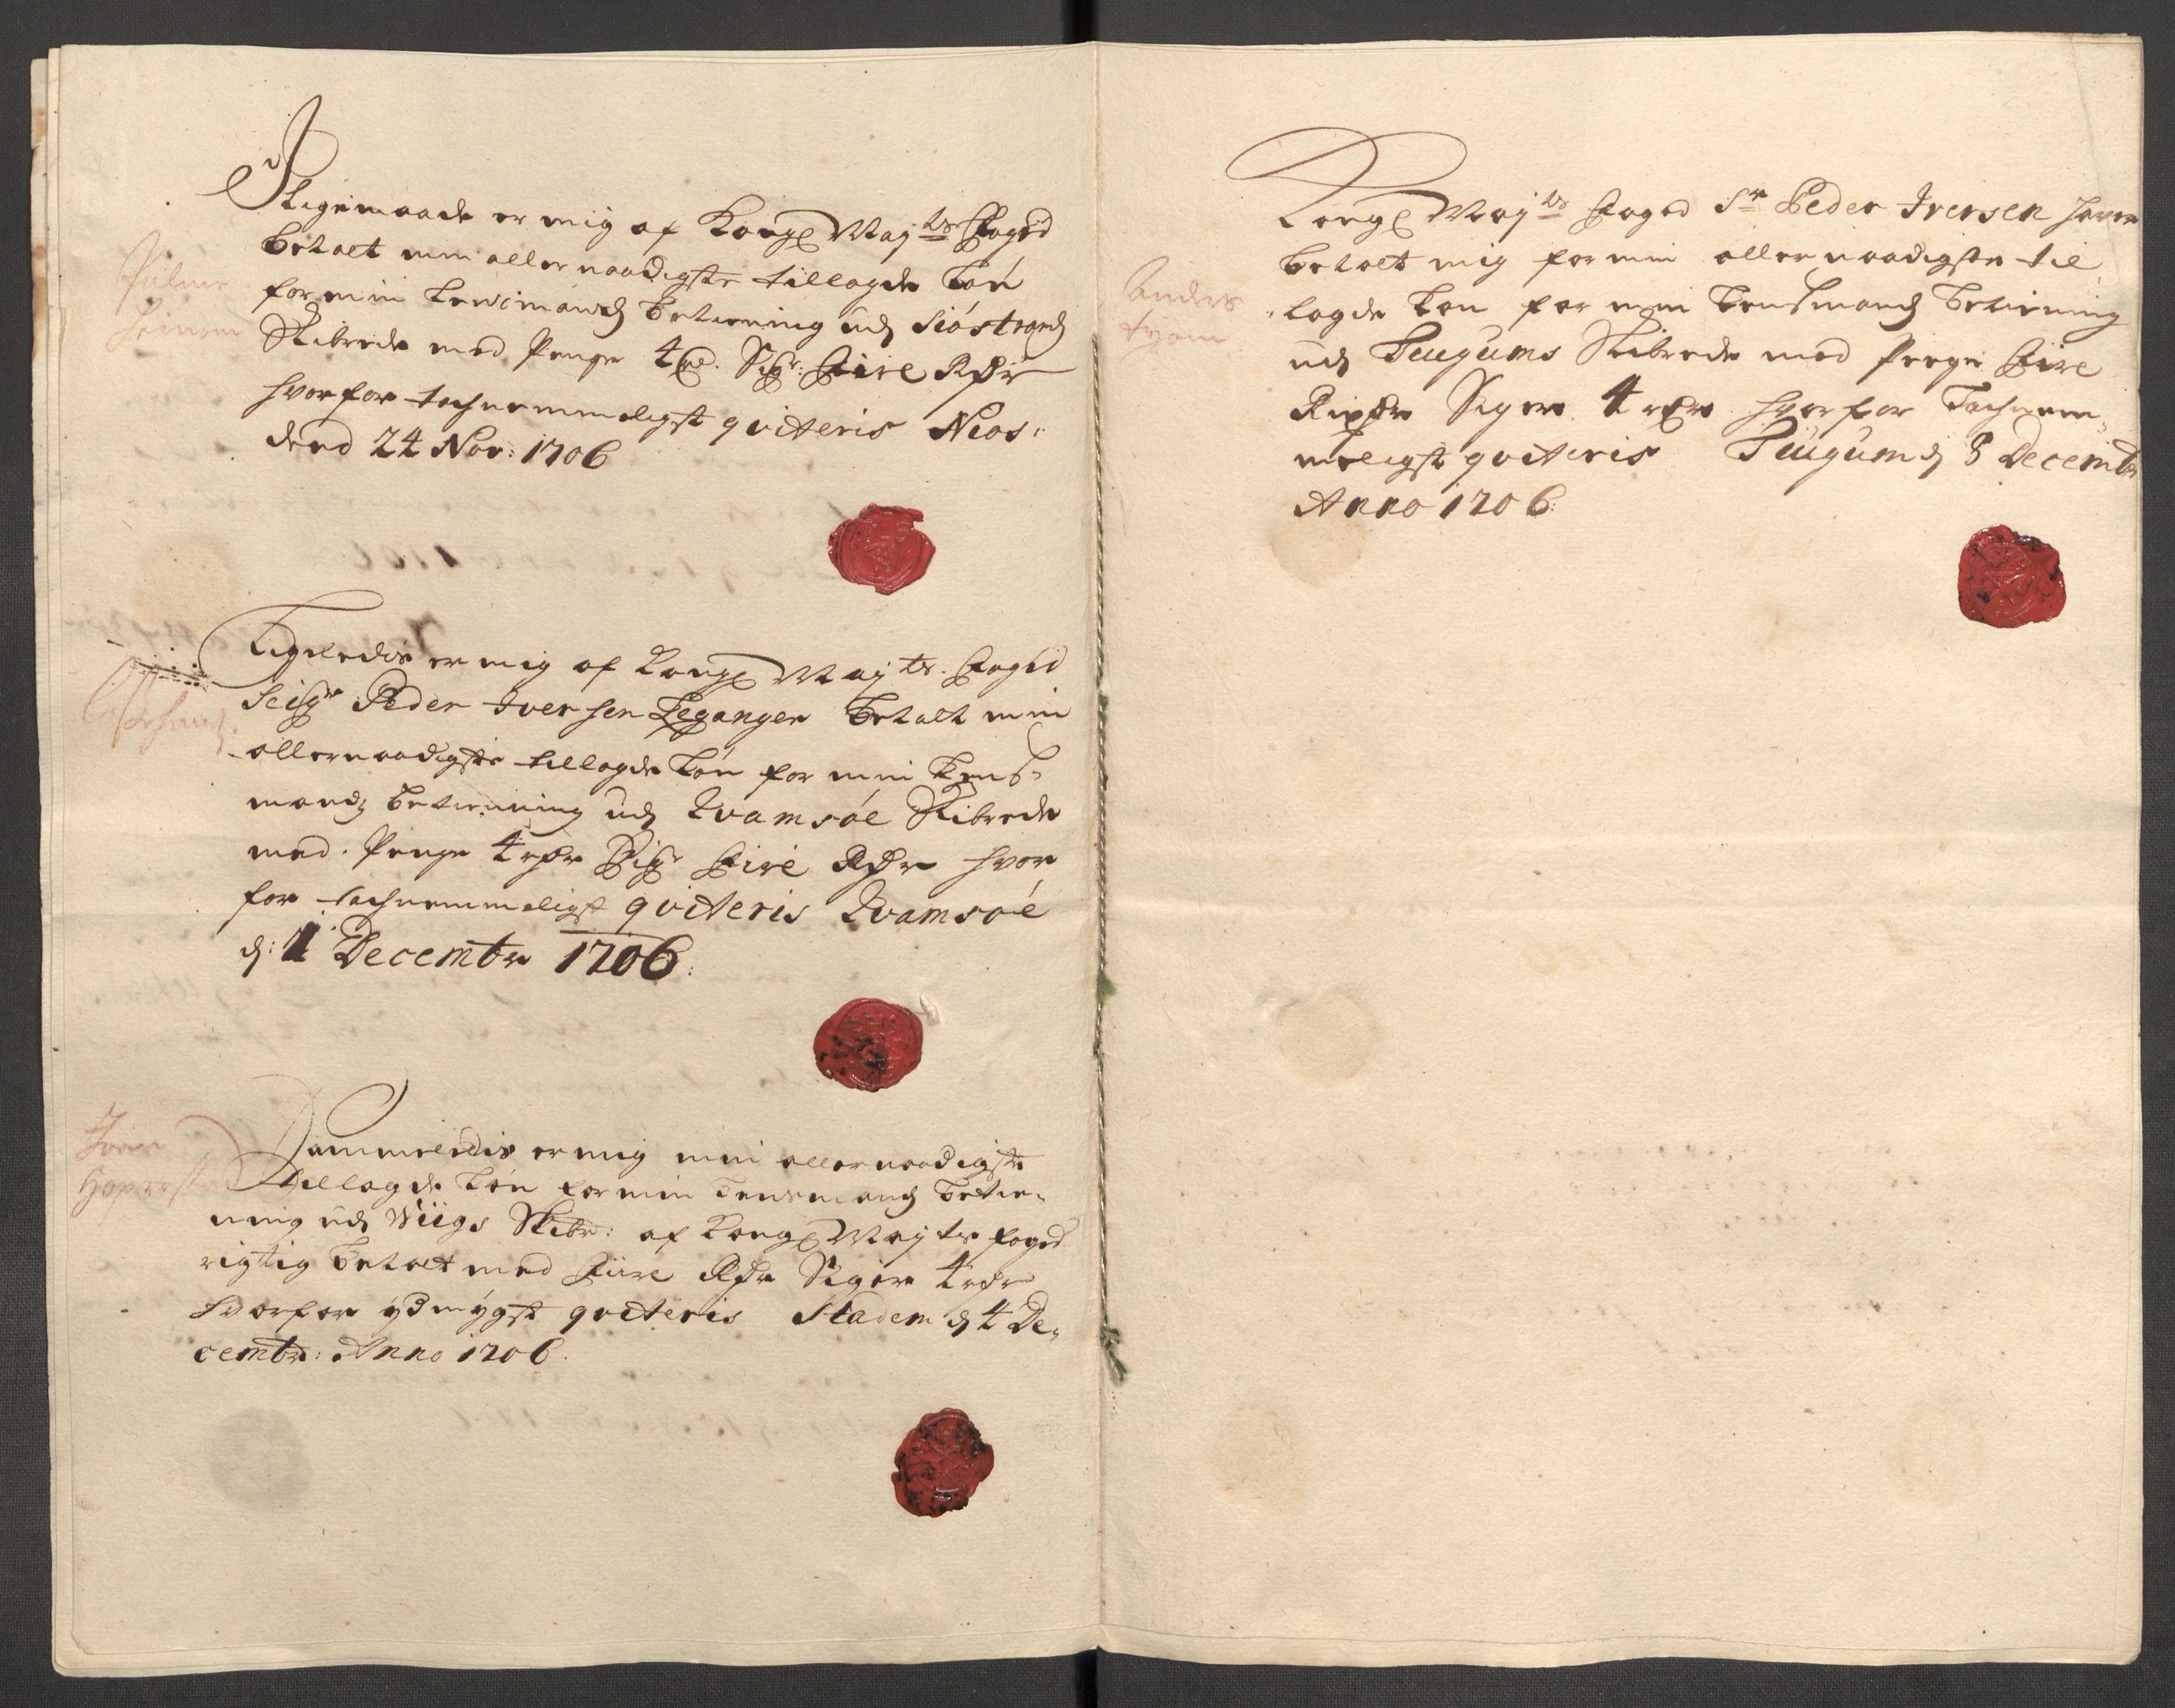 J Ligemaade er mig af Kongl Maÿtz Foged
betalt min allernaadigste tillagde Løn
for min Lensmands betiening udj Siøstrands
Skibrede med Penge 4 Rdr. Sigr: Fire Rdr
hvorfor tachnemmeligst qviteris Nios:
dend 24 Nov: 1706
Ligeledis er mig af Kongl Maÿts Foged
Seigr Peder Iversen Leganger betalt min
allernaadigste tillagde Løn for min Lens-
mands betienning udj Qvamsøe Skibrede
med Penge 4 rdr Sigr Fire Rdr hvor
for tachnemmeligst qviteris Qvamsøe
dj: 1 Decembr 1706:
Iver
Hoperstad
Sammeledis er mig min allernaadigste
tillagde Løn for min Lensmands betie-
ning udj Wiigs Skibr: af Kongl Maÿts foged
rigtig betalt med Fiire Rdr Siger 4 rdr
hvorfor ÿdmÿgst qviteris Stadem dj 4 De-
cembr: Anno 1706.
Anders
Kongl Maÿts Foged Sr Peder Iversen haver
betalt mig for min allernaadigste til
lagde Løn for min Lensmands betiening
udj Tuugums Skibrede med Penge Fire
Rixdr Siger 4 rdr hvorfor Tachnem-
meligst qviteris Tuugum dj 8 Decembr
Anno 1706: